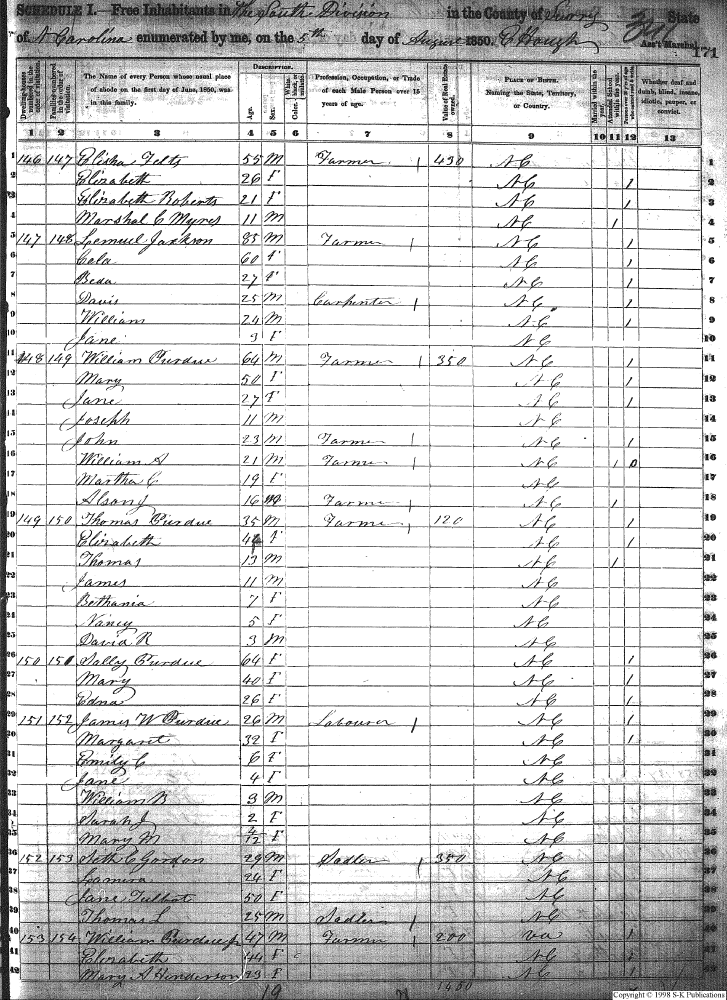 SCHEDULE I.—Free Inhabitants in The South Division in the County of Surry State
of N Carolina enumerated by me, on the 5th day of August 1850. C Hough Ass't Marshal. 171
Dwelling-houses numbered in the order of visitation.
Families numbered in the order of visitation.
The Name of every Person whose usual place of abode on the first day of June, 1850, was in this family.
DESCRIPTION.
Age.
Sex.
Color, White, black, or mulatto.
Profession, Occupation, or Trade of each Male Person over 15 years of age.
Value of Real Estate owned.
PLACE OF BIRTH. Naming the State, Territory, or Country.
Married within the year.
Attended School within the year.
Persons over 20 y'rs of age who cannot read & write.
Whether deaf and dumb, blind, insane, idiotic, pauper, or convict.
1 2 3 4 5 6 7 8 9 10 11 12 13
1 146 147 Elisha Felts 55 M Farmer 1 430 NC 1
2 Elizabeth 26 F NC 1 2
3 Elizabeth Roberts 21 F NC 1 3
4 Marshal C Myres 11 M NC 1 4
5 147 148 Lemuel Jackson 85 M Farmer 1 NC 1 5
6 Cela 60 F NC 1 6
7 Beda 27 F NC 1 7
8 Davis 25 M Carpenter 1 NC 1 8
9 William 24 M NC 1 9
10 Jane 3 F NC 10
11 148 149 William Purdue 64 M Farmer 1 350 NC 1 11
12 Mary 50 F NC 1 12
13 Jane 27 F NC 1 13
14 Joseph 11 M NC 14
15 John 23 M Farmer 1 NC 1 15
16 William A 21 M Farmer 1 NC 1 16
17 Martha C 19 F NC 17
18 Alsany 16 M Farmer 1 NC 1 18
19 149 150 Thomas Purdue 35 M Farmer 1 120 NC 1 19
20 Elizabeth F NC 1 20
21 Thomas 13 M NC 1 21
22 James 11 M NC 22
23 Bethania 7 F NC 23
24 Nancy 5 F NC 24
25 David R 3 M NC 25
26 150 151 Sally Purdue 64 F NC 1 26
27 Mary 40 F NC 1 27
28 Edna 26 F NC 1 28
29 151 152 James W Purdue 26 M Labourer 1 NC 1 29
30 Margaret 32 F NC 1 30
31 Emily C 6 F NC 31
32 Jane 4 F NC 32
33 William B 3 M NC 33
34 Sarah J 2 F NC 34
35 Mary M 4/12 F NC 35
36 152 153 Seth C Gordon 29 M Sadler 1 350 NC 36
37 Lamira 24 F NC 37
38 Jane Tulbot 50 F NC 38
39 Thomas L 25 M Sadler 1 NC 39
40 153 154 William Purdue Jr 47 M Farmer 1 200 Va 1 40
41 Elizabeth 44 F NC 1 41
42 Mary A Henderson 23 F NC 1 42
19
Copyright © 1998 S-K Publications